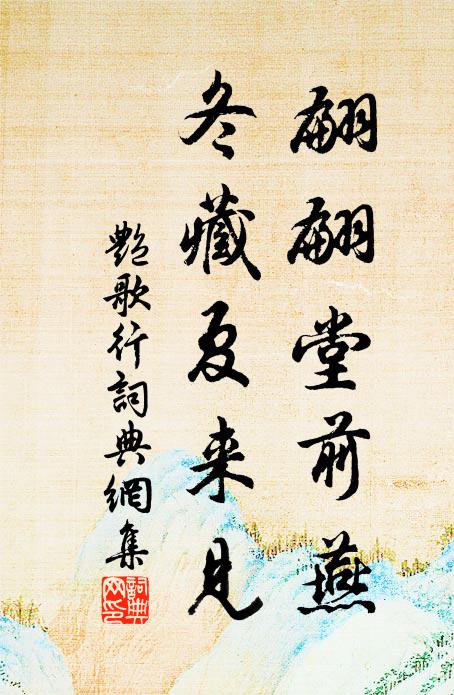 翩翩堂前燕
冬藏夏来見
艷歌行詞典網集
詞典网印